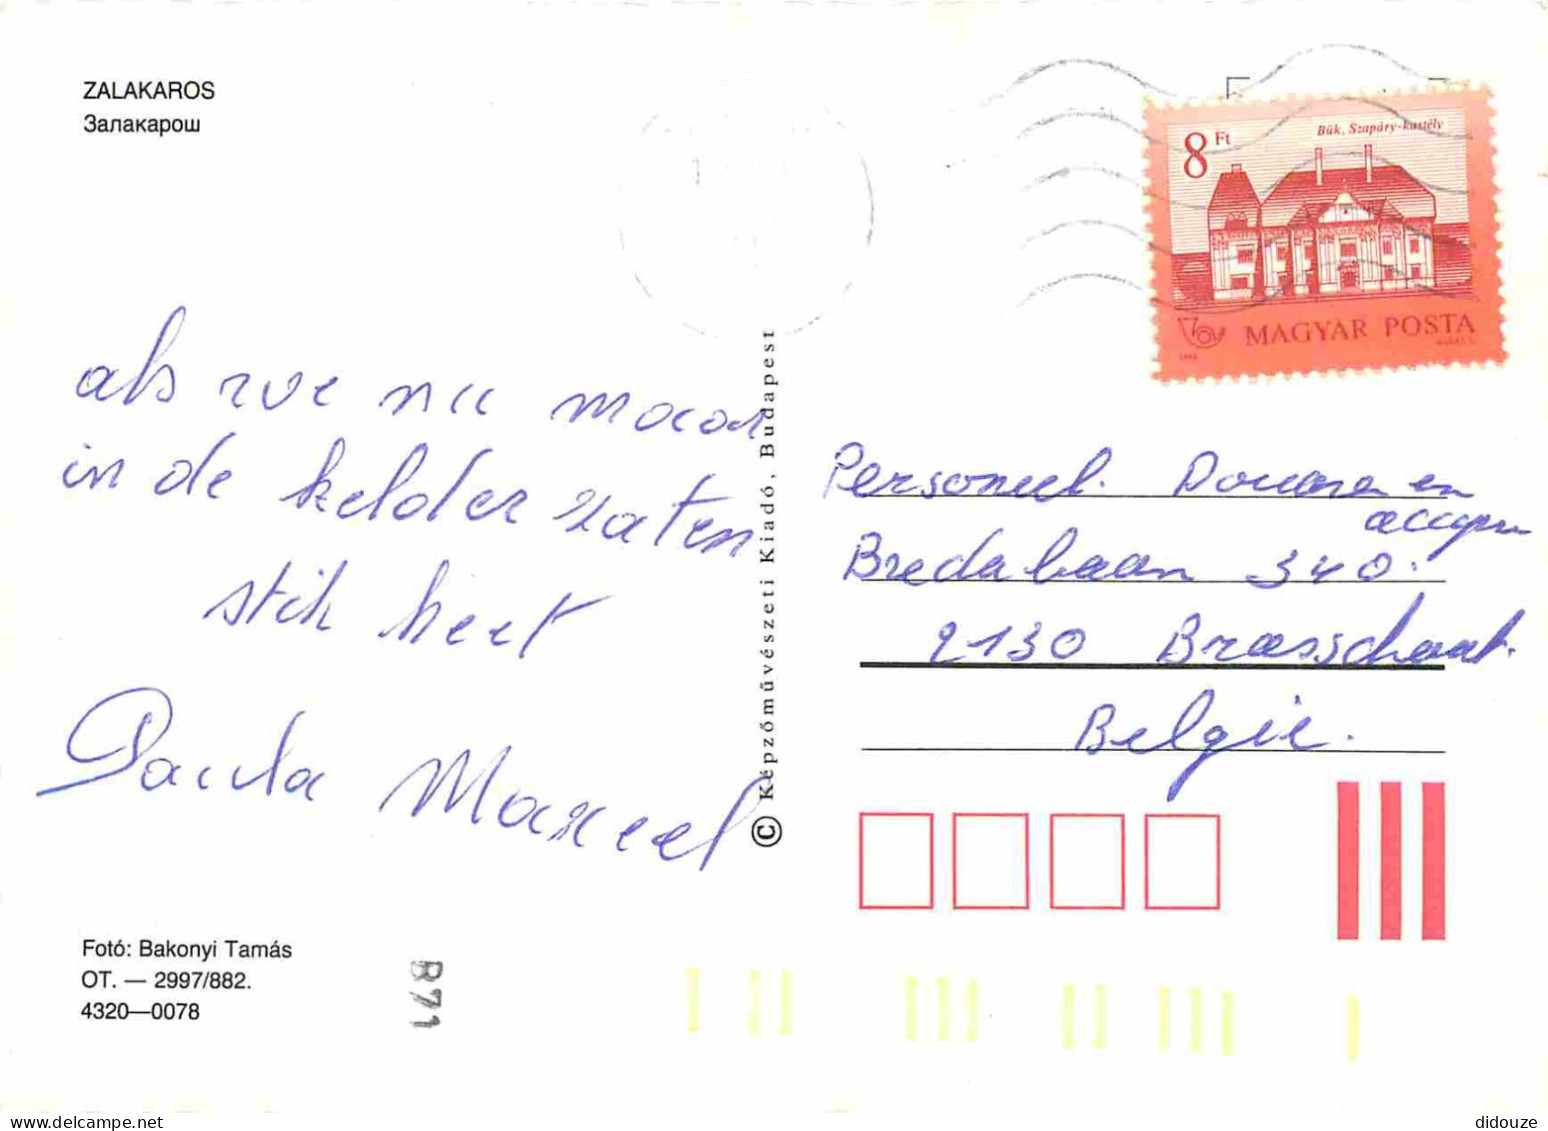 ZALAKAROS
Залакарош
8 Ft
Bük, Szapáry-kastély
MAGYAR POSTA
als we nu maar
in de kelder zaten
stik heet
Paula Marcel
© Képzőművészeti Kiadó, Budapest
Personeel Douane en
accijnzen
Bredabaan 340.
2130 Brasschaat.
België.
Fotó: Bakonyi Tamás
OT. — 2997/882.
4320—0078
B71
didouze